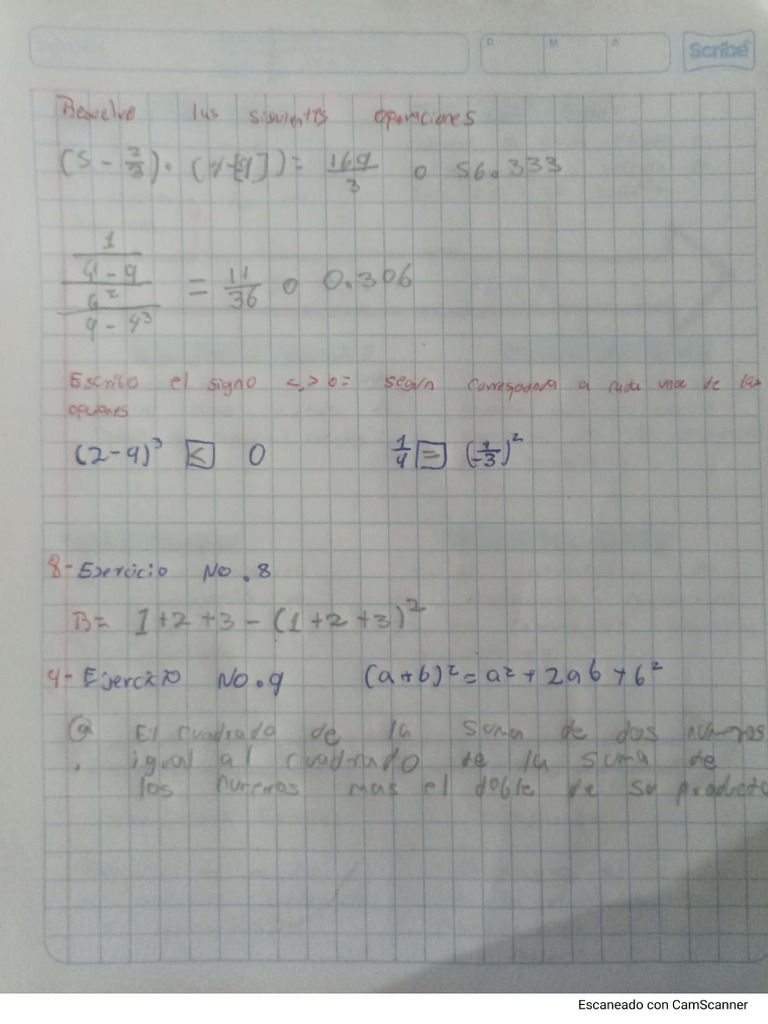 D M A Scribe
Resuelve las siguientes operaciones
(5 - 2/3) · = 169/3 o 56.333
1
4 - 9
6²
9 - 4³
= 11/36 o 0.306
Escribo el signo <,> o = según corresponda a cada una de las
opciones
(2-4)³ < 0 1/4 = ²
8- Exercicio No. 8
B= 1+2+3-(1+2+3)²
9- Ejercicio No. 9 (a+b)²=a²+2ab+b²
a El cuadrado de la suma de dos numeros
igual al cuadrado de la suma de
los numeros mas el doble de su producto
Escaneado con CamScanner